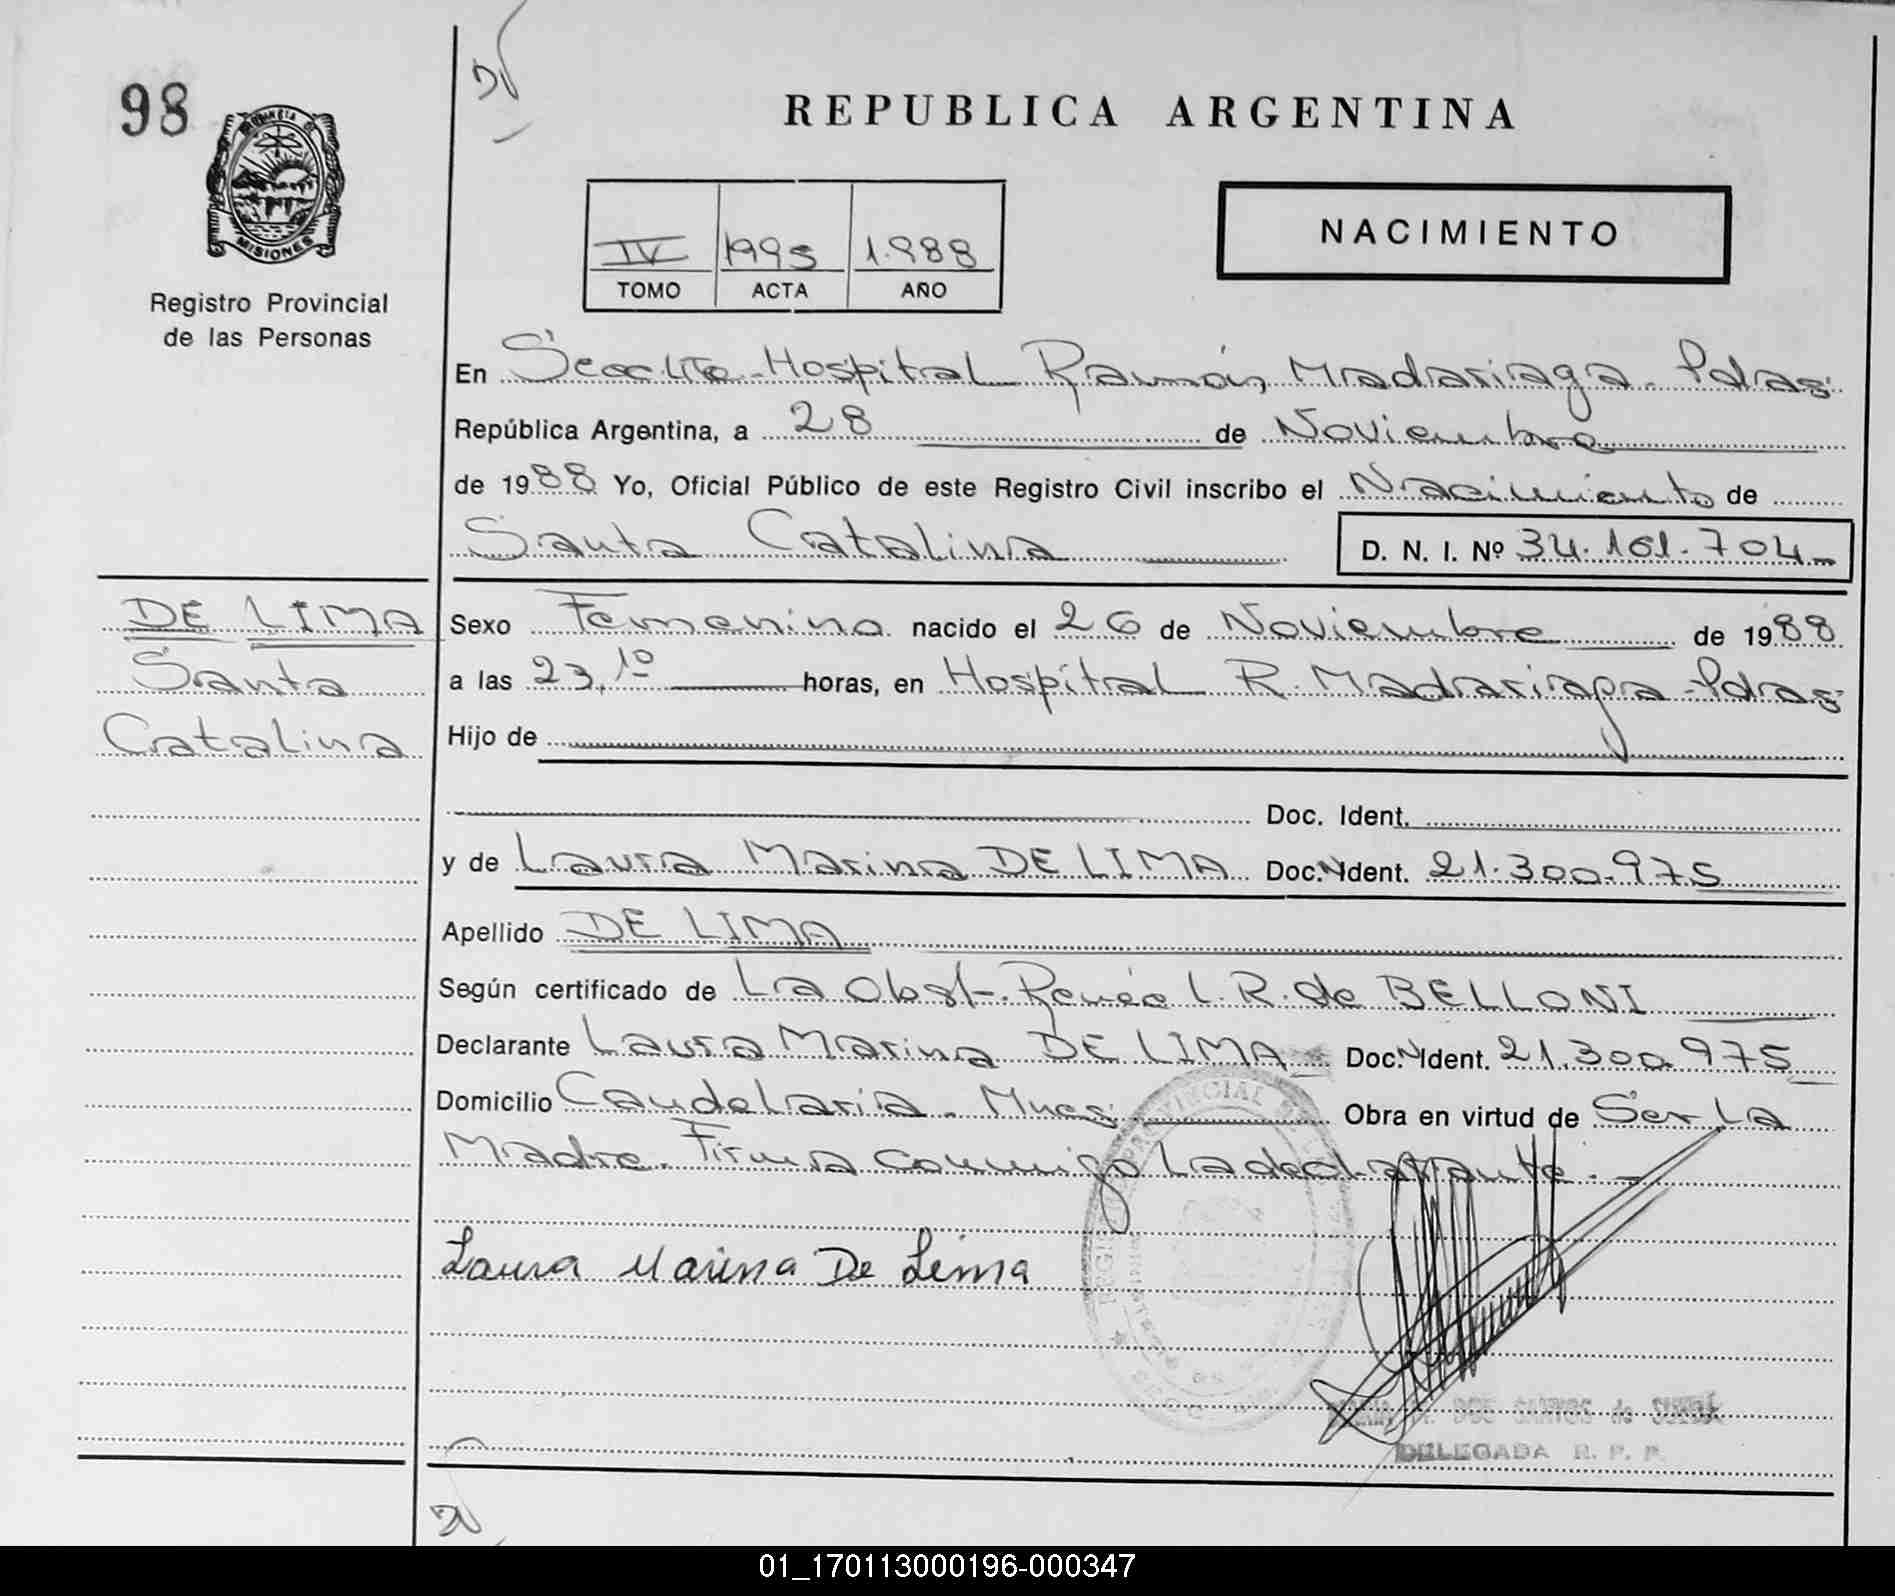 98
REPUBLICA ARGENTINA
MISIONES
Registro Provincial
de las Personas
IV 1995 1.988
TOMO ACTA AÑO
NACIMIENTO
En Hospital Ramón Madariaga - Pdas
República Argentina, a 28 de Noviembre
de 1988 Yo, Oficial Público de este Registro Civil inscribo el Nacimiento de
Santa Catalina D. N. I. Nº 34.161.704
DE LIMA
Santa
Catalina
Sexo Femenino nacido el 26 de Noviembre de 1988
a las 23,10 horas, en Hospital R. Madariaga - Pdas
Hijo de
Doc. Ident.
y de Laura Marina DE LIMA Doc.N Ident. 21.300.975
Apellido DE LIMA
Según certificado de La Obst. Renée L. R. de BELLONI
Declarante Laura Marina DE LIMA Doc.N Ident. 21.300.975
Domicilio Candelaria - Mnes Obra en virtud de Ser la
Madre. Firma conmigo la declarante. -
Laura Marina De Lima
DELEGADA R. P. P.
01_170113000196-000347